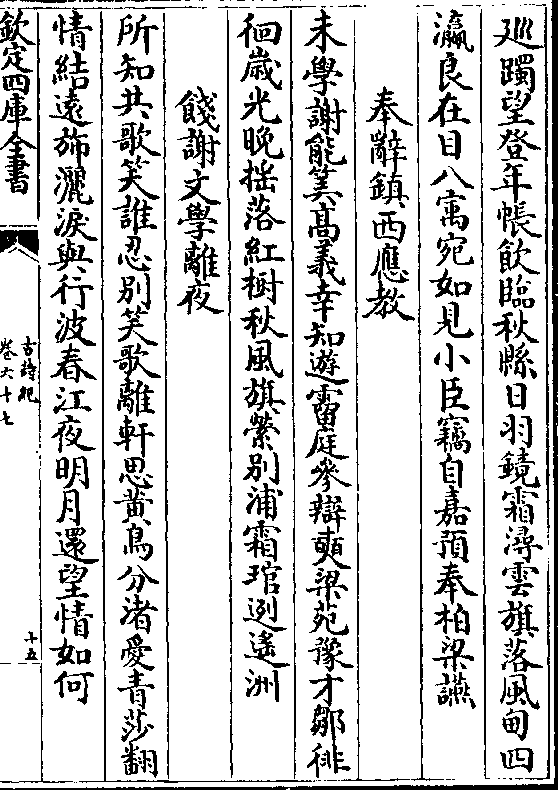 巡躅望登年帳飲臨秋縣日羽鏡霜潯雲旗落風甸四
瀛良在目八㝢宛如見小臣竊自嘉預奉柏梁讌
奉辭鎮西應教
未學謝能筭高義幸知遊霤庭參辯奭梁苑豫才鄒徘
徊歲光晚摇落紅樹秋風旗縈別浦霜琯迾遙洲
餞謝文學離夜
所知共歌笑誰忍別笑歌離軒思黄鳥分渚愛青莎翻
情結遠斾灑淚與行波春江夜明月還望情如何
欽定四庫全書
古詩紀
卷六十七
十五